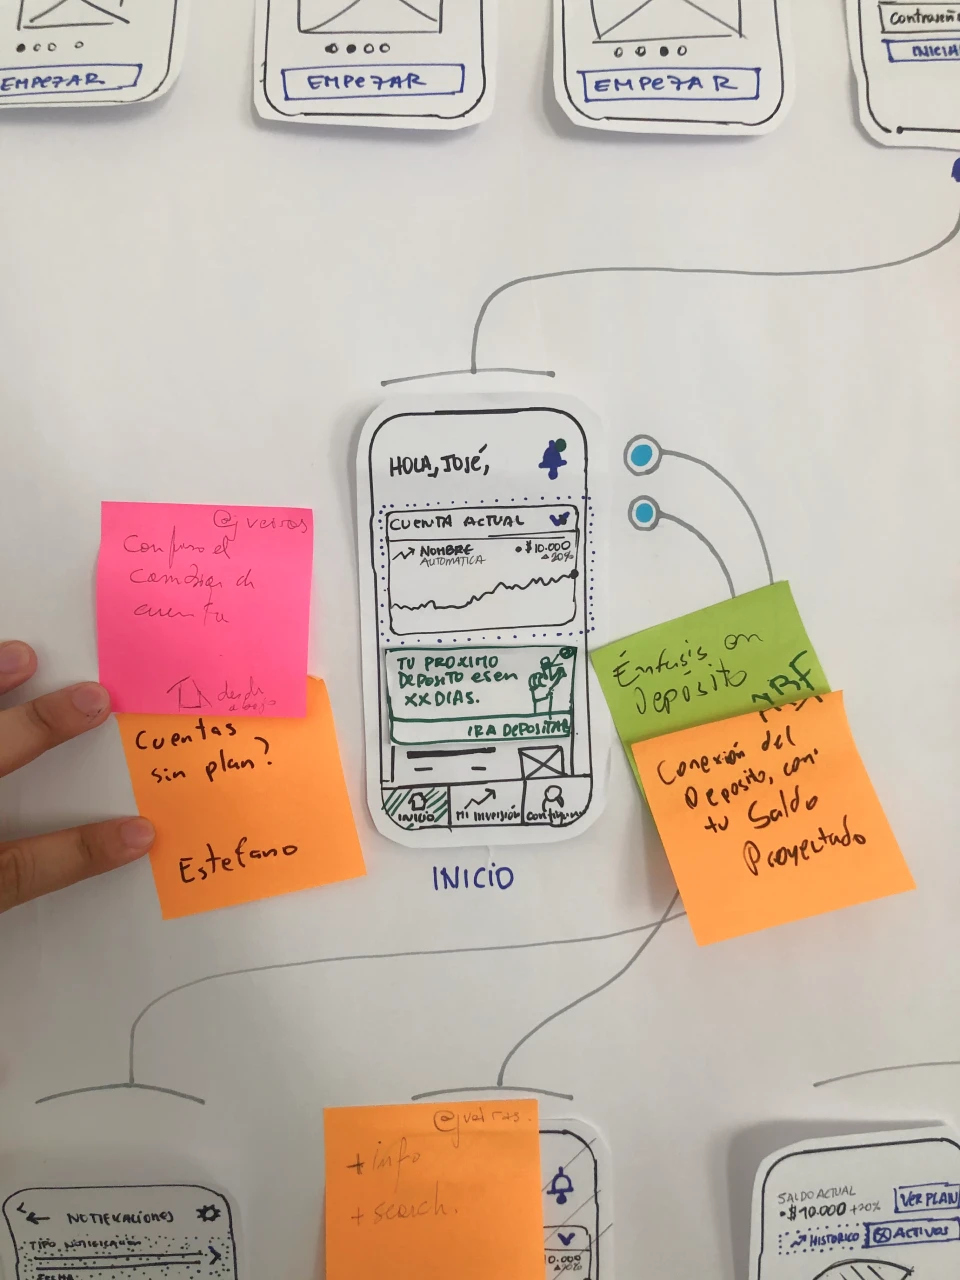 EMPEZAR
EMPEZAR
EMPEZAR
Contraseña
INICIA
HOLA, JOSÉ,
CUENTA ACTUAL
NOMBRE
$10.000
AUTOMATICA
20%
TU PROXIMO
DEPOSITO ES EN
XX DIAS.
IR A DEPOSITAR
INICIO
MI INVERSIÓN
INICIO
@jveiras
Confuso el
cambiar de
cuenta
desde
abajo
Cuentas
sin plan?
Estefano
Énfasis en
Deposito
NBF
Conexión del
Deposito, con
tu Saldo
Proyectado
@jveiras.
+ info
+ search.
NOTIFICACIONES
TIPO NOTIFICACIÓN
FECHA
0.000
20%
SALDO ACTUAL
$10.000 +20%
VER PLAN
HISTORICO
ACTIVOS